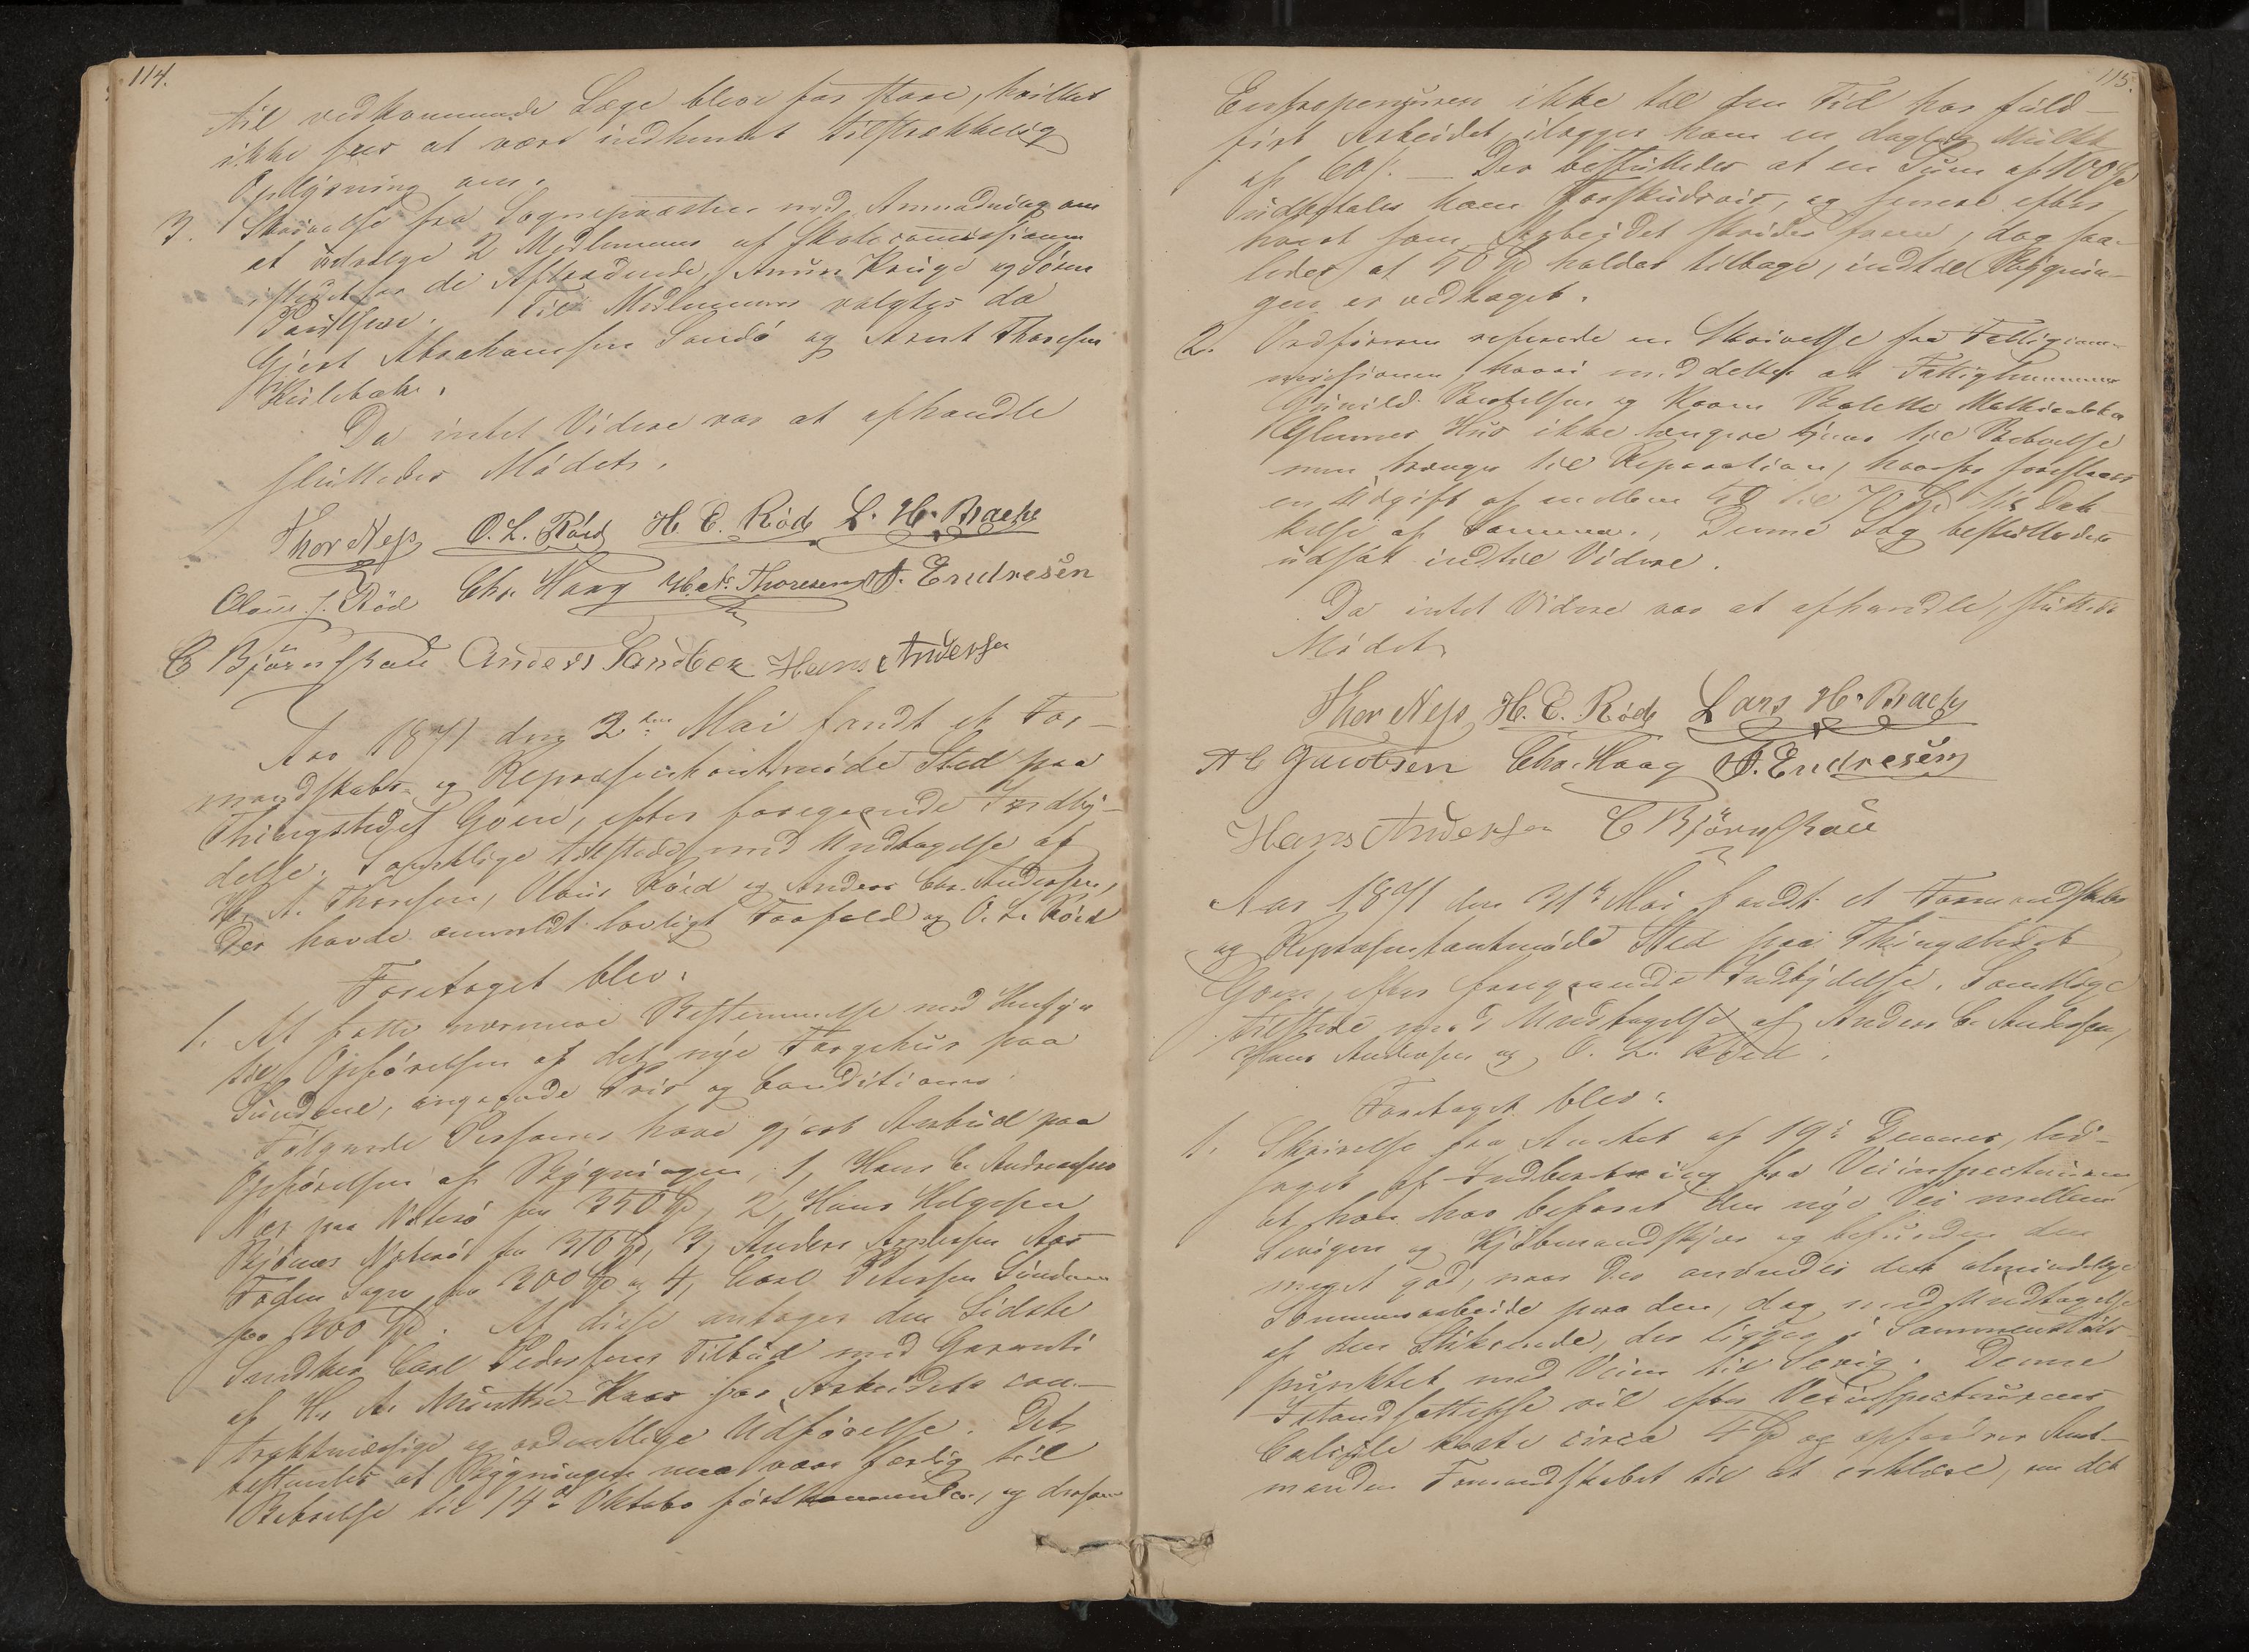 114.
til vedkommende Læge blev for store, hvilket
ikke sees at være indhentet tilstrækkelig
Oplysning om.
3. Skrivelse fra Sognepræsten med Anmodning om
at udvælge 2 Medlemmer af Skolecomissionen
istedetfor de Aftrædende, Anun Kruge og Søren
Paulsen. Til Medlemmer valgtes da
Gjert Abrahamsen Sandø og Arnt Thoresen
Kirlebæk.
Da intet Videre var at afhandle
sluttedes Mødet.
Thor Næss O. L. Röed H. E. Röds L. H. Bache
Olaus J. Röd Chr. Haag H. A. Thoresen A. Endresen
C Bjørnskau Anders Sandbek Hans Andersen
Aar 1871 den 2den Mai fandt et For-
mandskabs- og Repræsentantmøde Sted paa
Thingstedet Goen, efter foregaaende Indby-
delse. Samtlige tilstede med Undtagelse af
H. A. Thoresen, Olaus Röed og Anders Chr. Andersen,
Der havde anmeldt lovligt Forfald og O. L. Röed
Foretaget blev:
1. At fatte nærmere Bestemmelse med Hensyn
til Opførelsen af det nye Færgehus paa
Sundene, angaaende Pris og Conditioner.
Følgende Personer havde gjort Anbud paa
Opførelsen af Bygningen, 1, Hans C. Andreassen
Næs paa Nøterø for 350 Spd, 2, Hans Helgesen
Kjønnes Nøterø for 310 Spd, 3, Anders Andersen Aas
Sogn for 300 Spd og 4, Carl Petersen Sundene
for 200 Spd. Af disse antoges den Sidste
Snedker Carl Pedersens Tilbud med Garanti
af H. A. Munthe-Kaas for Arbeidets con-
traktmæssige og ordentlige Udførelse. Det
bestemtes at Bygningen maa være færdig til
Beboelse til 14de Oktober førstkommende, og dersom
115.
Entreprenøren ikke til den Tid har fuld-
ført Arbeidet, ilægges ham en daglig Mulkt
af 60 s. — Der besluttedes at en Sum af 100 Spd
udbetales ham Forskudsvis, og senere efter
hvert som Arbeidet skrider frem, dog saa-
ledes at 50 Spd holdes tilbage, indtil Bygnin-
gen er vedtaget.
2. Ordføreren refererede en Skrivelse fra Fattigcom-
missionen, hvori meddeltes at Fattiglemmerne
Gunild Bertelsen og Karen Bolette Mathiasdatter
Glennes Hus ikke længere tjener til Beboelse
men trænger til Reparation, hvorfor foreslaaes
en Udgift af mellem 50 til 70 Spd til Dæk-
kelse af Samme. Denne Sag besluttedes
udsat indtil Videre.
Da intet Videre var at afhandle, sluttede
Mødet.
Thor Næss H. E. Röds Lars H. Bache
A C Jacobsen Chr. Haag A. Endresen
Hans Andersen C Bjørnskau
Aar 1871 den 31te Mai fandt et Formandskabs
og Repræsentantmøde Sted paa Thingstedet
Goen, efter foregaaende Indbydelse. Samtlige
tilstede med Undtagelse af Anders C. Andersen,
Hans Andersen og O. L. Röed.
Foretaget blev:
1. Skrivelse fra Amtet af 19de Dennes, led-
saget af Indberetning fra Veiinspecteuren
at han har befaret den nye Vei mellem
Sevigen og Kjøbmandskjær og befunden den
meget god, naar der anvendes det almindelige
Sommerarbeide paa den, dog med Undtagelse
af den Stikrende, der ligger i Sammenstøds-
punktet med Veien til Sevig. Denne
Istandsættelse vil efter Veiinspecteurens
Calcüle koste circa 4 Spd og opfordrer Amt-
manden Formandskabet til at erklære, om det